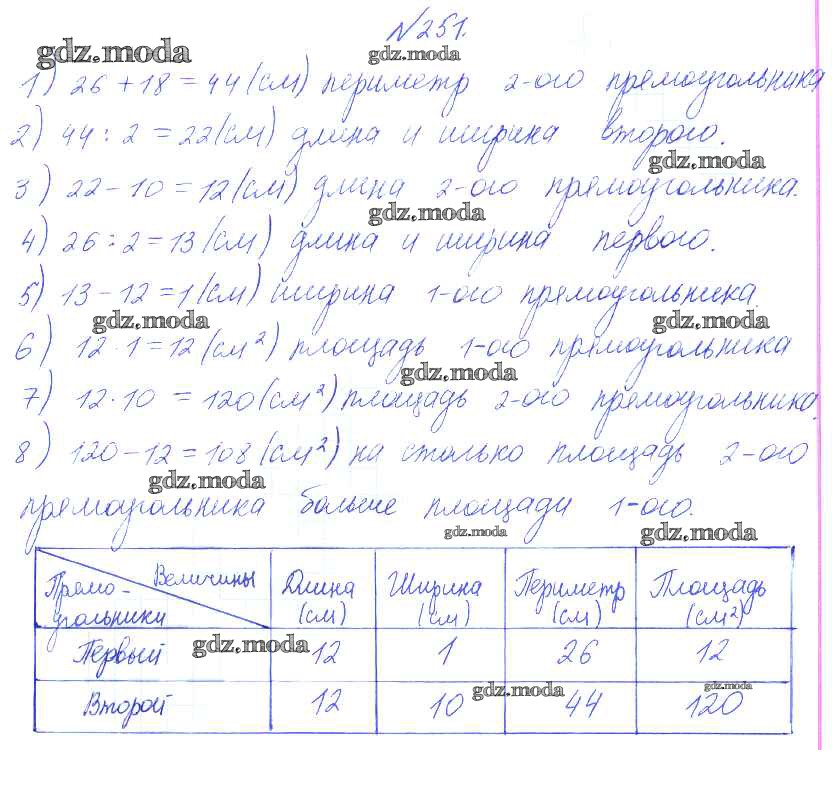 №251.
gdz.moda
gdz.moda
1) 26 + 18 = 44 (см) периметр 2-ого прямоугольника
2) 44 : 2 = 22 (см) длина и ширина второго.
gdz.moda
3) 22 - 10 = 12 (см) длина 2-ого прямоугольника.
gdz.moda
4) 26 : 2 = 13 (см) длина и ширина первого.
5) 13 - 12 = 1 (см) ширина 1-ого прямоугольника.
gdz.moda gdz.moda
6) 12 · 1 = 12 (см²) площадь 1-ого прямоугольника
gdz.moda
7) 12 · 10 = 120 (см²) площадь 2-ого прямоугольника.
8) 120 - 12 = 108 (см²) на столько площадь 2-ого
gdz.moda
прямоугольника больше площади 1-ого.
gdz.moda gdz.moda
Величины Длина Ширина Периметр Площадь
Прямо- (см) (см) (см) (см²)
угольники
Первый 12 1 26 12
gdz.moda
Второй 12 10 44 120
gdz.moda gdz.moda